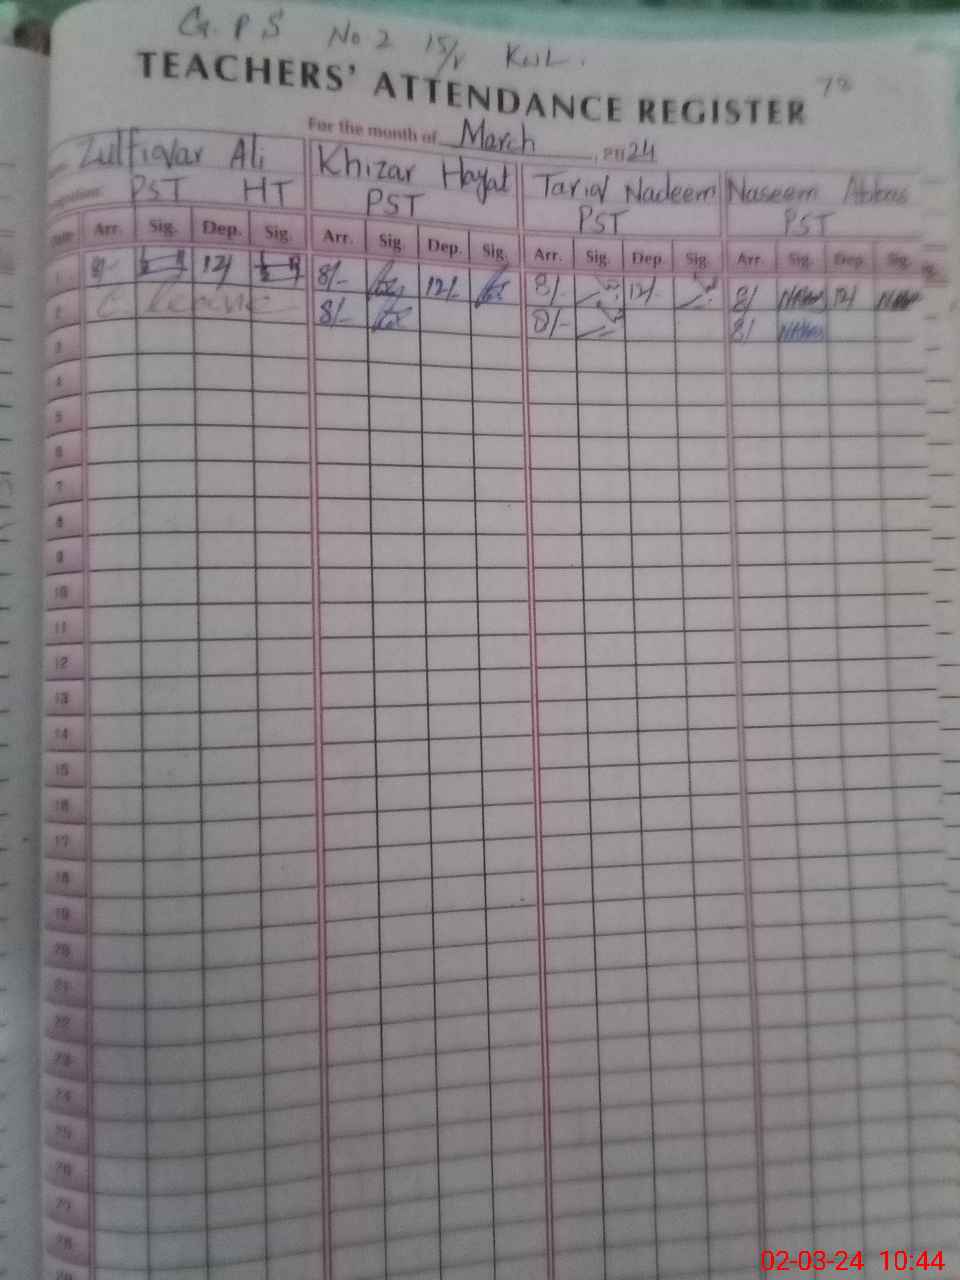 G. P S No 2 15/V KWL.
78
TEACHERS' ATTENDANCE REGISTER
For the month of March, 24
Zulfiqar Ali Khizar Hayat Tariq Nadeem Naseem Abbas
PST HT PST PST PST
Date Arr. Sig. Dep. Sig. Arr. Sig. Dep. Sig. Arr. Sig. Dep. Sig. Arr. Sig. Dep. Sig.
1 8/- 12/ 8/- 12/- 8/- 12/- 8/ 12/
2 8/- 8/- 8/
3
4
5
6
7
8
9
10
11
12
13
14
15
16
17
18
19
20
21
22
23
24
25
26
27
28
02-03-24 10:44